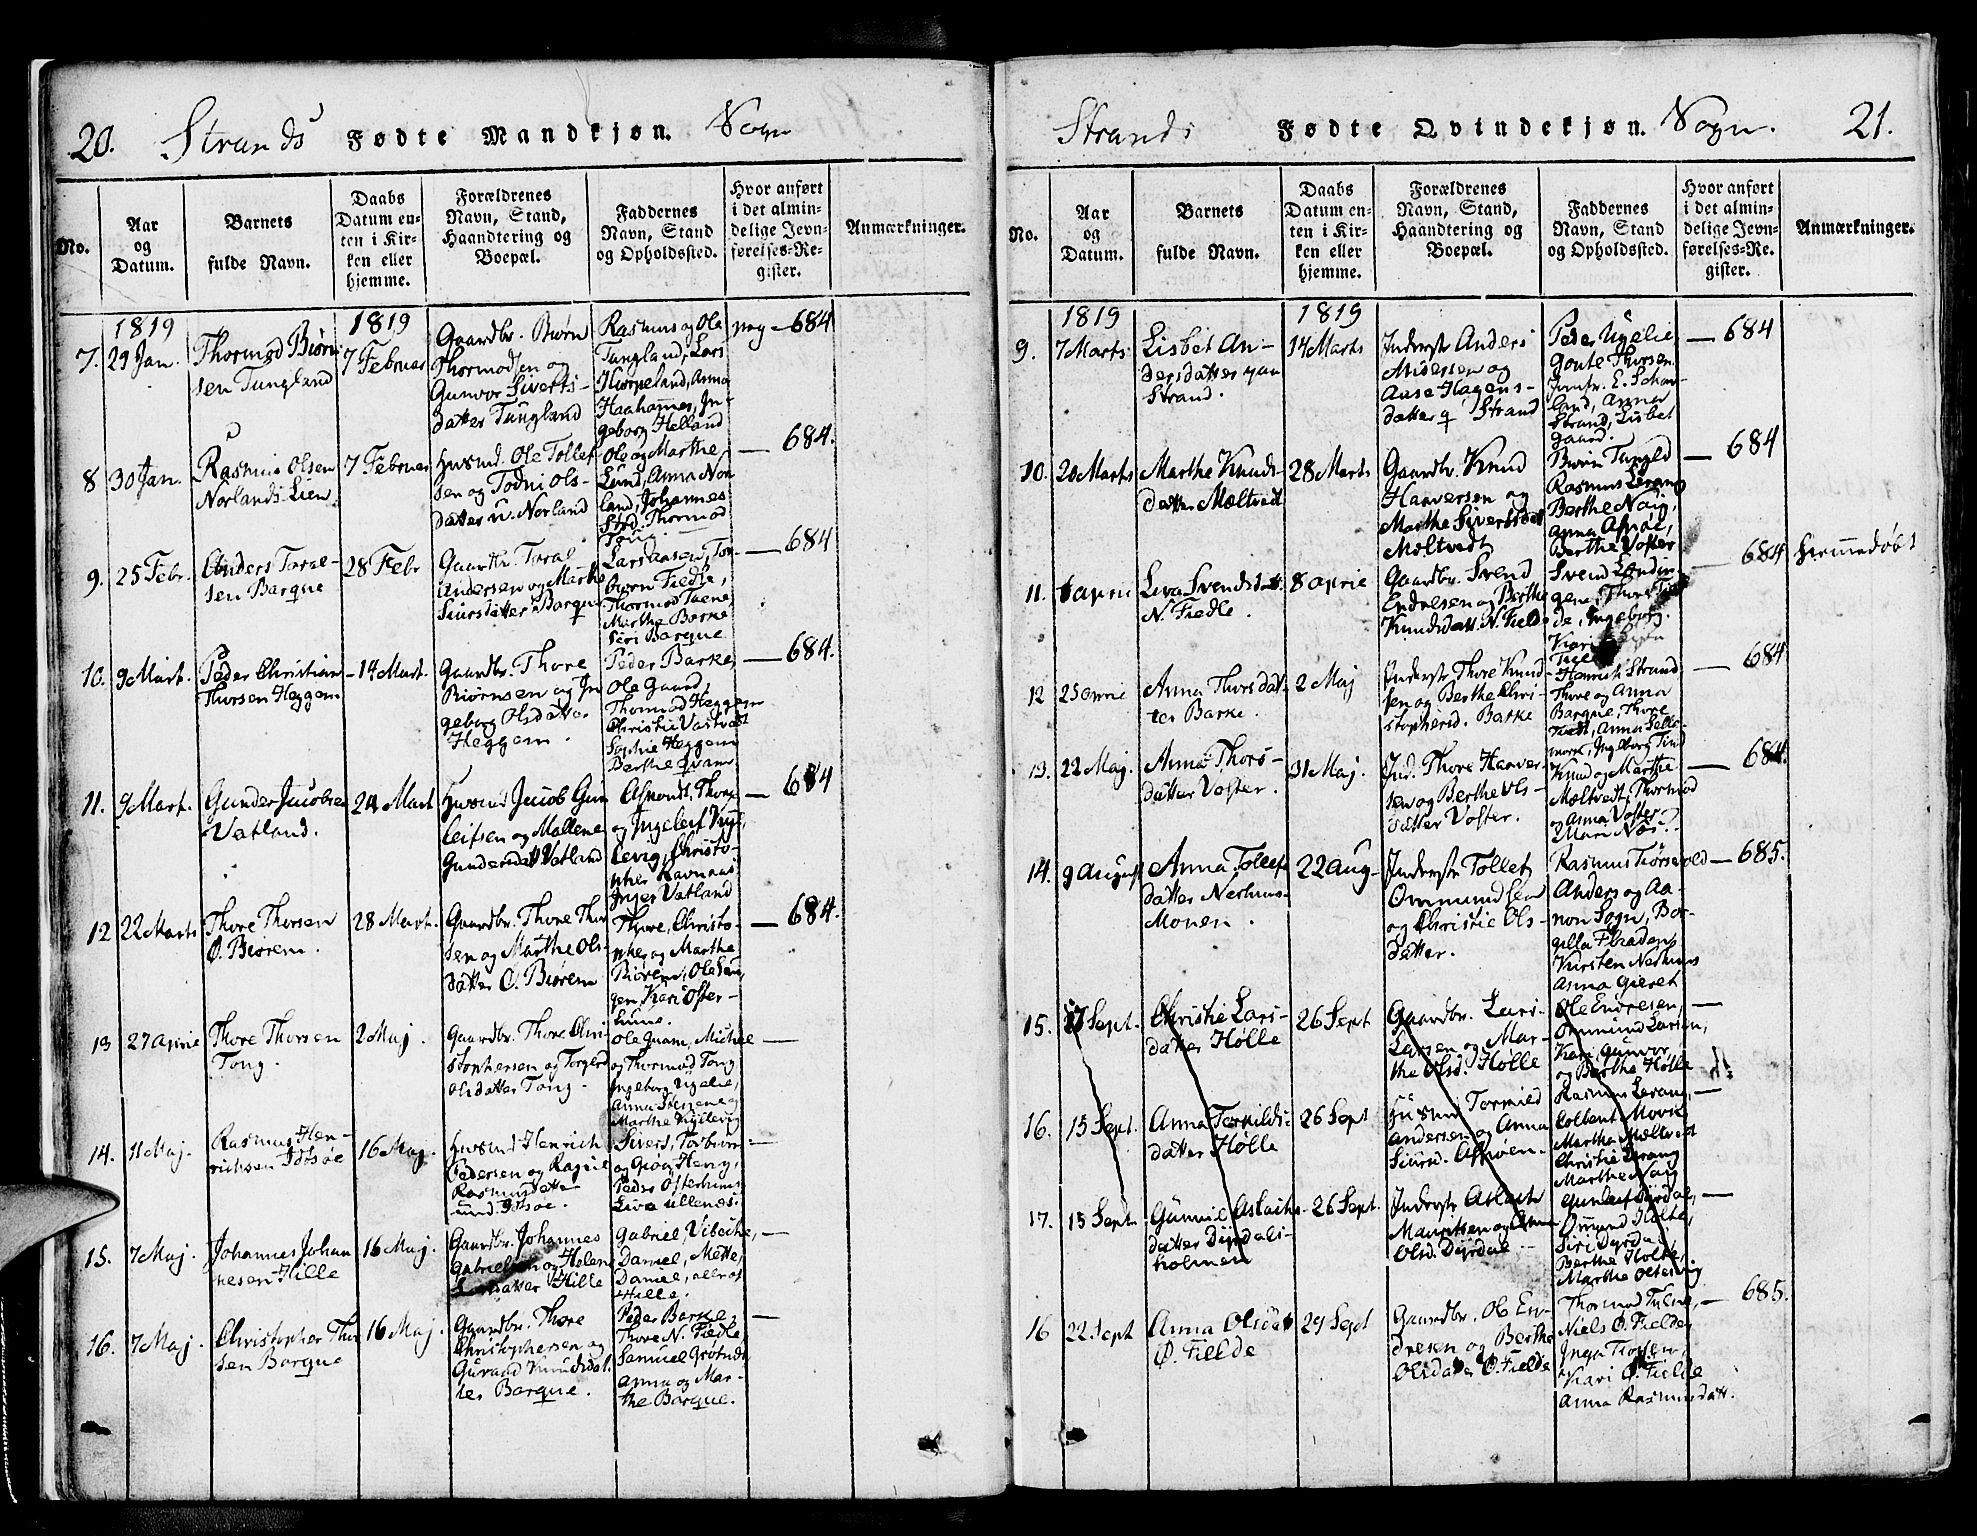 20. Strands Fødte Mandkjøn. Sogn
No.
Aar
og
Datum.
Barnets
fulde Navn.
Daabs
Datum en-
ten i Kir-
ken eller
hjemme.
Forældrenes
Navn, Stand,
Haandtering og
Boepæl.
Faddernes
Navn, Stand
og Opholdssted.
Hvor anført
i det almin-
delige Jevn-
førelses-Re-
gister.
Anmærkninger.
1819
7. 29 Jan.
Thormod Biørn
sen Tungland
1819
7 Februar
Gaardbr. Biørn
Thormodsen og
Gunvor Siverts-
datter Tungland
Rasmus og Ole
Tungland, Lars
Hiorpeland, Anna
Haahammer, In-
geborg Helland
pag - 684
8 30 Jan.
Rasmus Olsen
Norlands Lien
7 Februar
Husmd. Ole Tollef
sen og Todni Ols-
datter u. Norland
Ole og Marthe
Lund, Anna Nor
land, Johannes
Thormod
Tong
— 684.
9. 25 Febr.
Anders Taral-
sen Barque
28 Febr
Gaardbr. Taral
Andersen og Marthe
Siursdatter Barque
Lars Aasen, Tor-
biørn Fiedle,
Thormod Tuene,
Marthe Barke
Siri Barque
— 684
10. 9 Mart.
Peder Christian
Thorsen Heggem
14 Mart.
Gaardbr. Thore
Biørnsen og In
geborg Olsdatter
Heggem.
Peder Barke,
Ole Gaard,
Thormod Heggem
Christie Vastvedt
Sophie Heggem
Berthe Qvam
— 684.
11. 9 Mart.
Gunder Jacobsen
Vatland.
24 Mart
Husmd Jacob Gun
leifsen og Mallene
Gundersdatt Vatland
Asmondt, Thore
og Ingeleif
Levig, Christo-
pher Ravnaas
Inger Vatland
— 684
12 22 Marts
Thore Thorsen
Ø. Biørem.
28 Mart.
Gaardbr. Thore Thor
sen og Marthe Ols-
datter Ø. Biørem
Thore, Christo-
pher og Marthe
Biørem, Ole
gen, Kari Øster-
— 684.
13 27 Aprie
Thore Thorsen
Tong.
2 Maj.
Gaardbr. Thore Chri-
stophersen og Torgerd
Olsdatter Tong.
Ole Quam, Michel
og Thormod Tong
Ingeborg Ugelie,
Anna
Marthe
—
14. 11 Maj.
Rasmus Hen-
richsen Idsøe
16 Maj.
Husmd Henrich
Pedersen og Ragnil
Rasmusdatter
und. Idsøe.
Siverd, Torbiørn
og Heng,
Peder Østerhuus
Live Ullenes.
—
15. 7 Maj.
Johannes Johan
nesen Hille
16 Maj.
Gaardbr. Johannes
Gabrielsen og Helene
Larsdatter Hille
Gabriel, Vibeche,
Daniel, Mette,
Daniel, alle af
Hille.
—
16. 7 Maj.
Christopher Thor
sen Barque
16 Maj.
Gaardbr. Thore
Christophersen og
Guravd Knudsdat
ter Barque.
Peder Barke,
Thore N. Fiedle,
Samuel Grøtnæs
Anna og Mar-
the Barque.
—
Strands Fødte Qvindekjøn. Sogn. 21.
No.
Aar
og
Datum.
Barnets
fulde Navn.
Daabs
Datum en-
ten i Kir-
ken eller
hjemme.
Forældrenes
Navn, Stand,
Haandtering og
Boepæl.
Faddernes
Navn, Stand
og Opholdssted.
Hvor anført
i det almin-
delige Jevn-
førelses-Re-
gister.
Anmærkninger.
1819
9. 7 Marts
Lisbet An-
dersdatter
Strand.
1819
14 Marts
Inderste Anders
Midersen og
Aase Hagens-
datter Strand
Peder Ugelie
Goute Thorsen
Jomfr. E. Schar-
land, Anna
Strand, Lisbet
Gaard.
— 684
10. 20 Marts
Marthe Knuds-
datter Mæltvedt
28 Marts
Gaardbr. Knud
Haaversen og
Marthe Sivertsdat
Mæltvedt
Biørn Tungld
Rasmus Lerang
Berthe Naig,
Berthe Voster
— 684
11. 6 Aprie
Liva Svendsdatt.
N. Fiedle.
8 Aprie
Gaardbr. Svend
Endresen og Berthe
Knudsdatt. N. Fielde
Svend Londen
gene, Thore Fiel
de, Ingeborg.
Kari
— 684 Hiemmedøbt
12 25 Aprie
Anna Thorsdat-
ter Barke.
2 Maj
Inderste Thore Knud-
sen og Berthe Chri-
stophersd. Barke
Henrich Strand
Thore og Anna
Barque, Thore
Tiedt, Anna Selle-
morк, Ingeborg Tind
— 684
13. 22 Maj.
Anna Thors-
datter Voster.
31 Maj.
Ind. Thore Haaver-
sen og Berthe Ols-
datter Voster.
Knud og Marthe
Mæltvedt, Thormod
og Anna Voster
Mari Næs.
— 684
14. 9 August
Anna Tollefs
datter Nerhus-
Monen.
22 Aug-
Inderste Tollef
Ommundsen
og Christie Ols-
datter.
Rasmus Tiørsvold
Anders og Aa-
non Sogn, Bor-
gilla Fladene
Kirsten Nerhuus
Anna Gieret
— 685.
15. 17 Sept.
Christie Lars-
datter Hølle
26 Sept
Gaardbr. Lars
Larsen og Mar-
the Olsd. Hølle
Ole Endresen,
Ommund Larsen,
Kari, Gunvor,
og Berthe Hølle
—
16. 15 Sept.
Anna Torkilds-
datter Hølle
26 Sept
Husmd Tormild
Andersen og Anna
Siursd. Asmoen.
Rasmus Lerang,
Colbent Morck
Martha Mæltvedt
Christie Lerang
Marthe Naig
—
17. 15 Sept
Gunnil Aslachs-
datter Dyrdals-
holmen
26 Sept.
Inderste Aslach
Mauritsen og Anne
Olsd. Dyrdal
Gunlef Dyrdal,
Ommund Holte,
Siri Dyrdal
Berthe Holte,
Marthe Oltesvig
—
16 22 Sept
Anna Olsdat
Ø. Fiellde
29 Sept
Gaardbr. Ole En-
dresen og Berthe
Olsdatter Ø. Fielde
Thormod Tuene,
Niels Ø. Fielde,
Inga Tiosen,
Kari Ø. Fielde
Anna Rasmusdatt.
— 685.